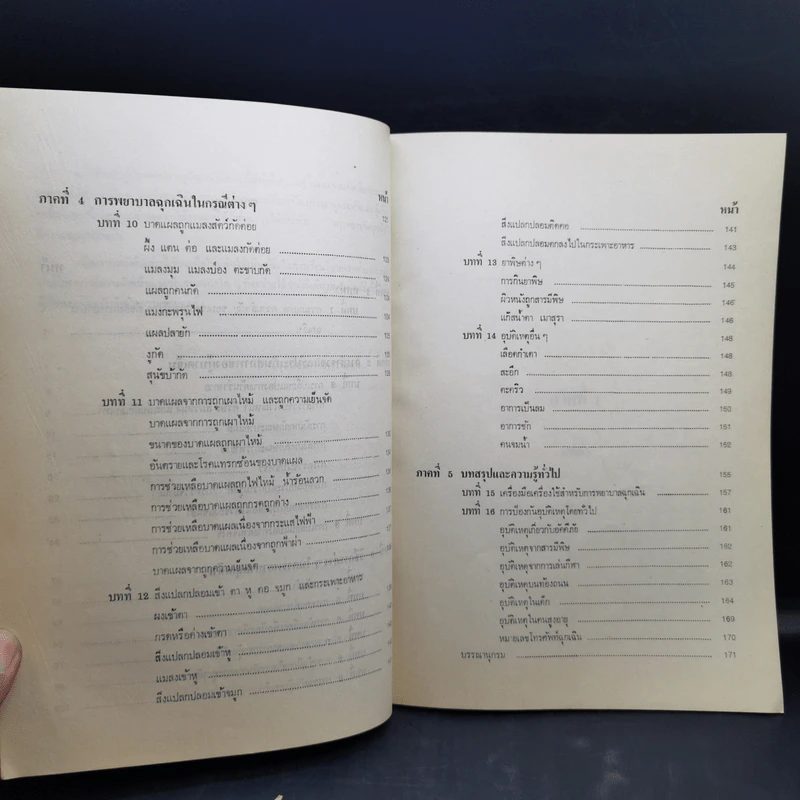 หน้า
ภาคที่ 4 การพยาบาลฉุกเฉินในกรณีต่าง ๆ
บทที่ 10 บาดแผลถูกแมลงสัตว์กัดต่อย
ผึ้ง แตน ต่อ และแมลงกัดต่อย
แมลงมุม แมลงป่อง ตะขาบกัด
แผลถูกคนกัด
แมงกะพรุนไฟ
แผลปลายัก
งูกัด
สุนัขบ้ากัด
บทที่ 11 บาดแผลจากการถูกเผาไหม้ และถูกความเย็นจัด
บาดแผลจากการถูกเผาไหม้
ขนาดของบาดแผลถูกเผาไหม้
อันตรายและโรคแทรกซ้อนของบาดแผล
การช่วยเหลือบาดแผลถูกไฟไหม้ น้ำร้อนลวก
การช่วยเหลือบาดแผลถูกกรดถูกด่าง
การช่วยเหลือบาดแผลเนื่องจากกระแสไฟฟ้า
การช่วยเหลือบาดแผลเนื่องจากถูกฟ้าผ่า
บาดแผลจากถูกความเย็นจัด
บทที่ 12 สิ่งแปลกปลอมเข้า ตา หู คอ จมูก และกระเพาะอาหาร
ผงเข้าตา
กรดหรือด่างเข้าตา
สิ่งแปลกปลอมเข้าหู
แมลงเข้าหู
สิ่งแปลกปลอมเข้าจมูก
หน้า
สิ่งแปลกปลอมติดคอ 141
สิ่งแปลกปลอมตกลงไปในกระเพาะอาหาร 143
บทที่ 13 ยาพิษต่าง ๆ 144
การกินยาพิษ 145
ผิวหนังถูกสารมีพิษ 146
แก๊สน้ำตา เมาสุรา 146
บทที่ 14 อุบัติเหตุอื่น ๆ 148
เลือดกำเดา 148
สะอึก 148
ตะคริว 149
อาการเป็นลม 150
อาการชัก 151
คนจมน้ำ 152
ภาคที่ 5 บทสรุปและความรู้ทั่วไป 155
บทที่ 15 เครื่องมือเครื่องใช้สำหรับการพยาบาลฉุกเฉิน 157
บทที่ 16 การป้องกันอุบัติเหตุโดยทั่วไป 161
อุบัติเหตุเกี่ยวกับอัคคีภัย 161
อุบัติเหตุจากสารมีพิษ 162
อุบัติเหตุจากการเล่นกีฬา 162
อุบัติเหตุบนท้องถนน 163
อุบัติเหตุในเด็ก 164
อุบัติเหตุในคนสูงอายุ 169
หมายเลขโทรศัพท์ฉุกเฉิน 170
บรรณานุกรม 171